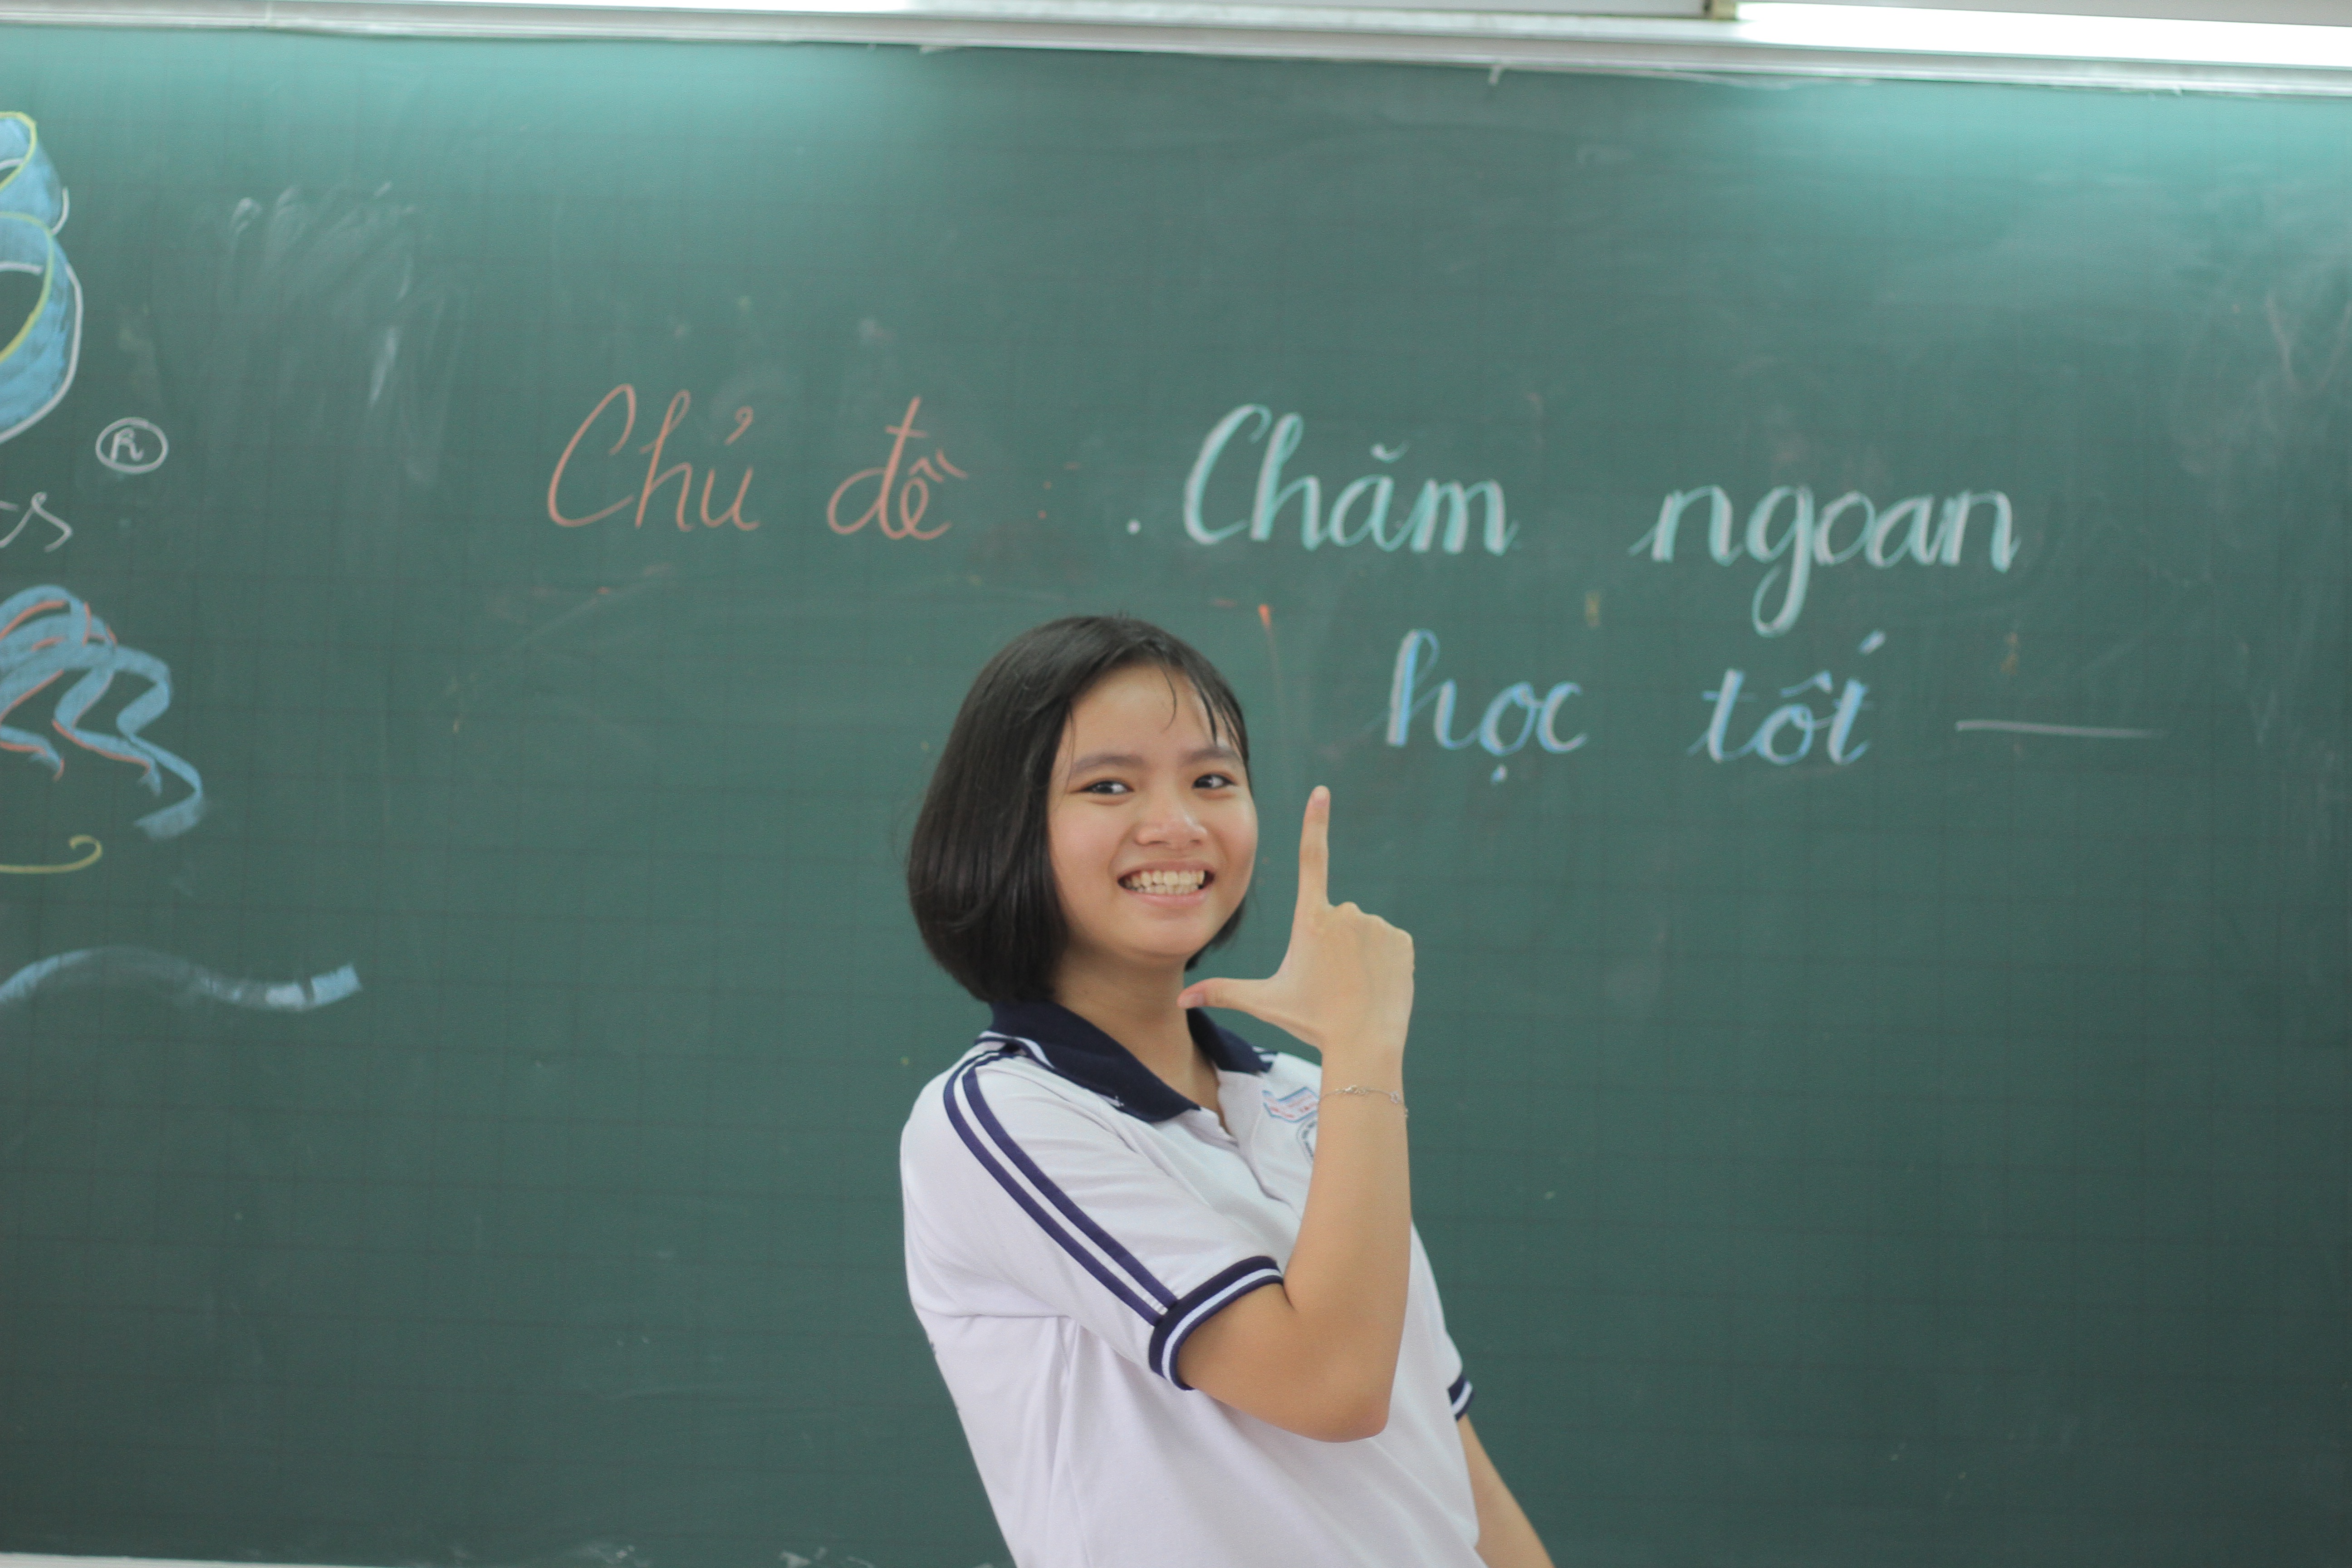 Chủ đề : Chăm ngoan
học tốt
®
ts